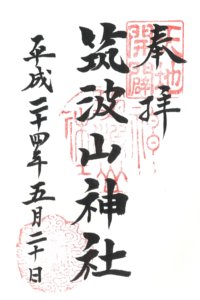 奉拝
天地開闢
筑波山神社
平成二十四年五月二十日